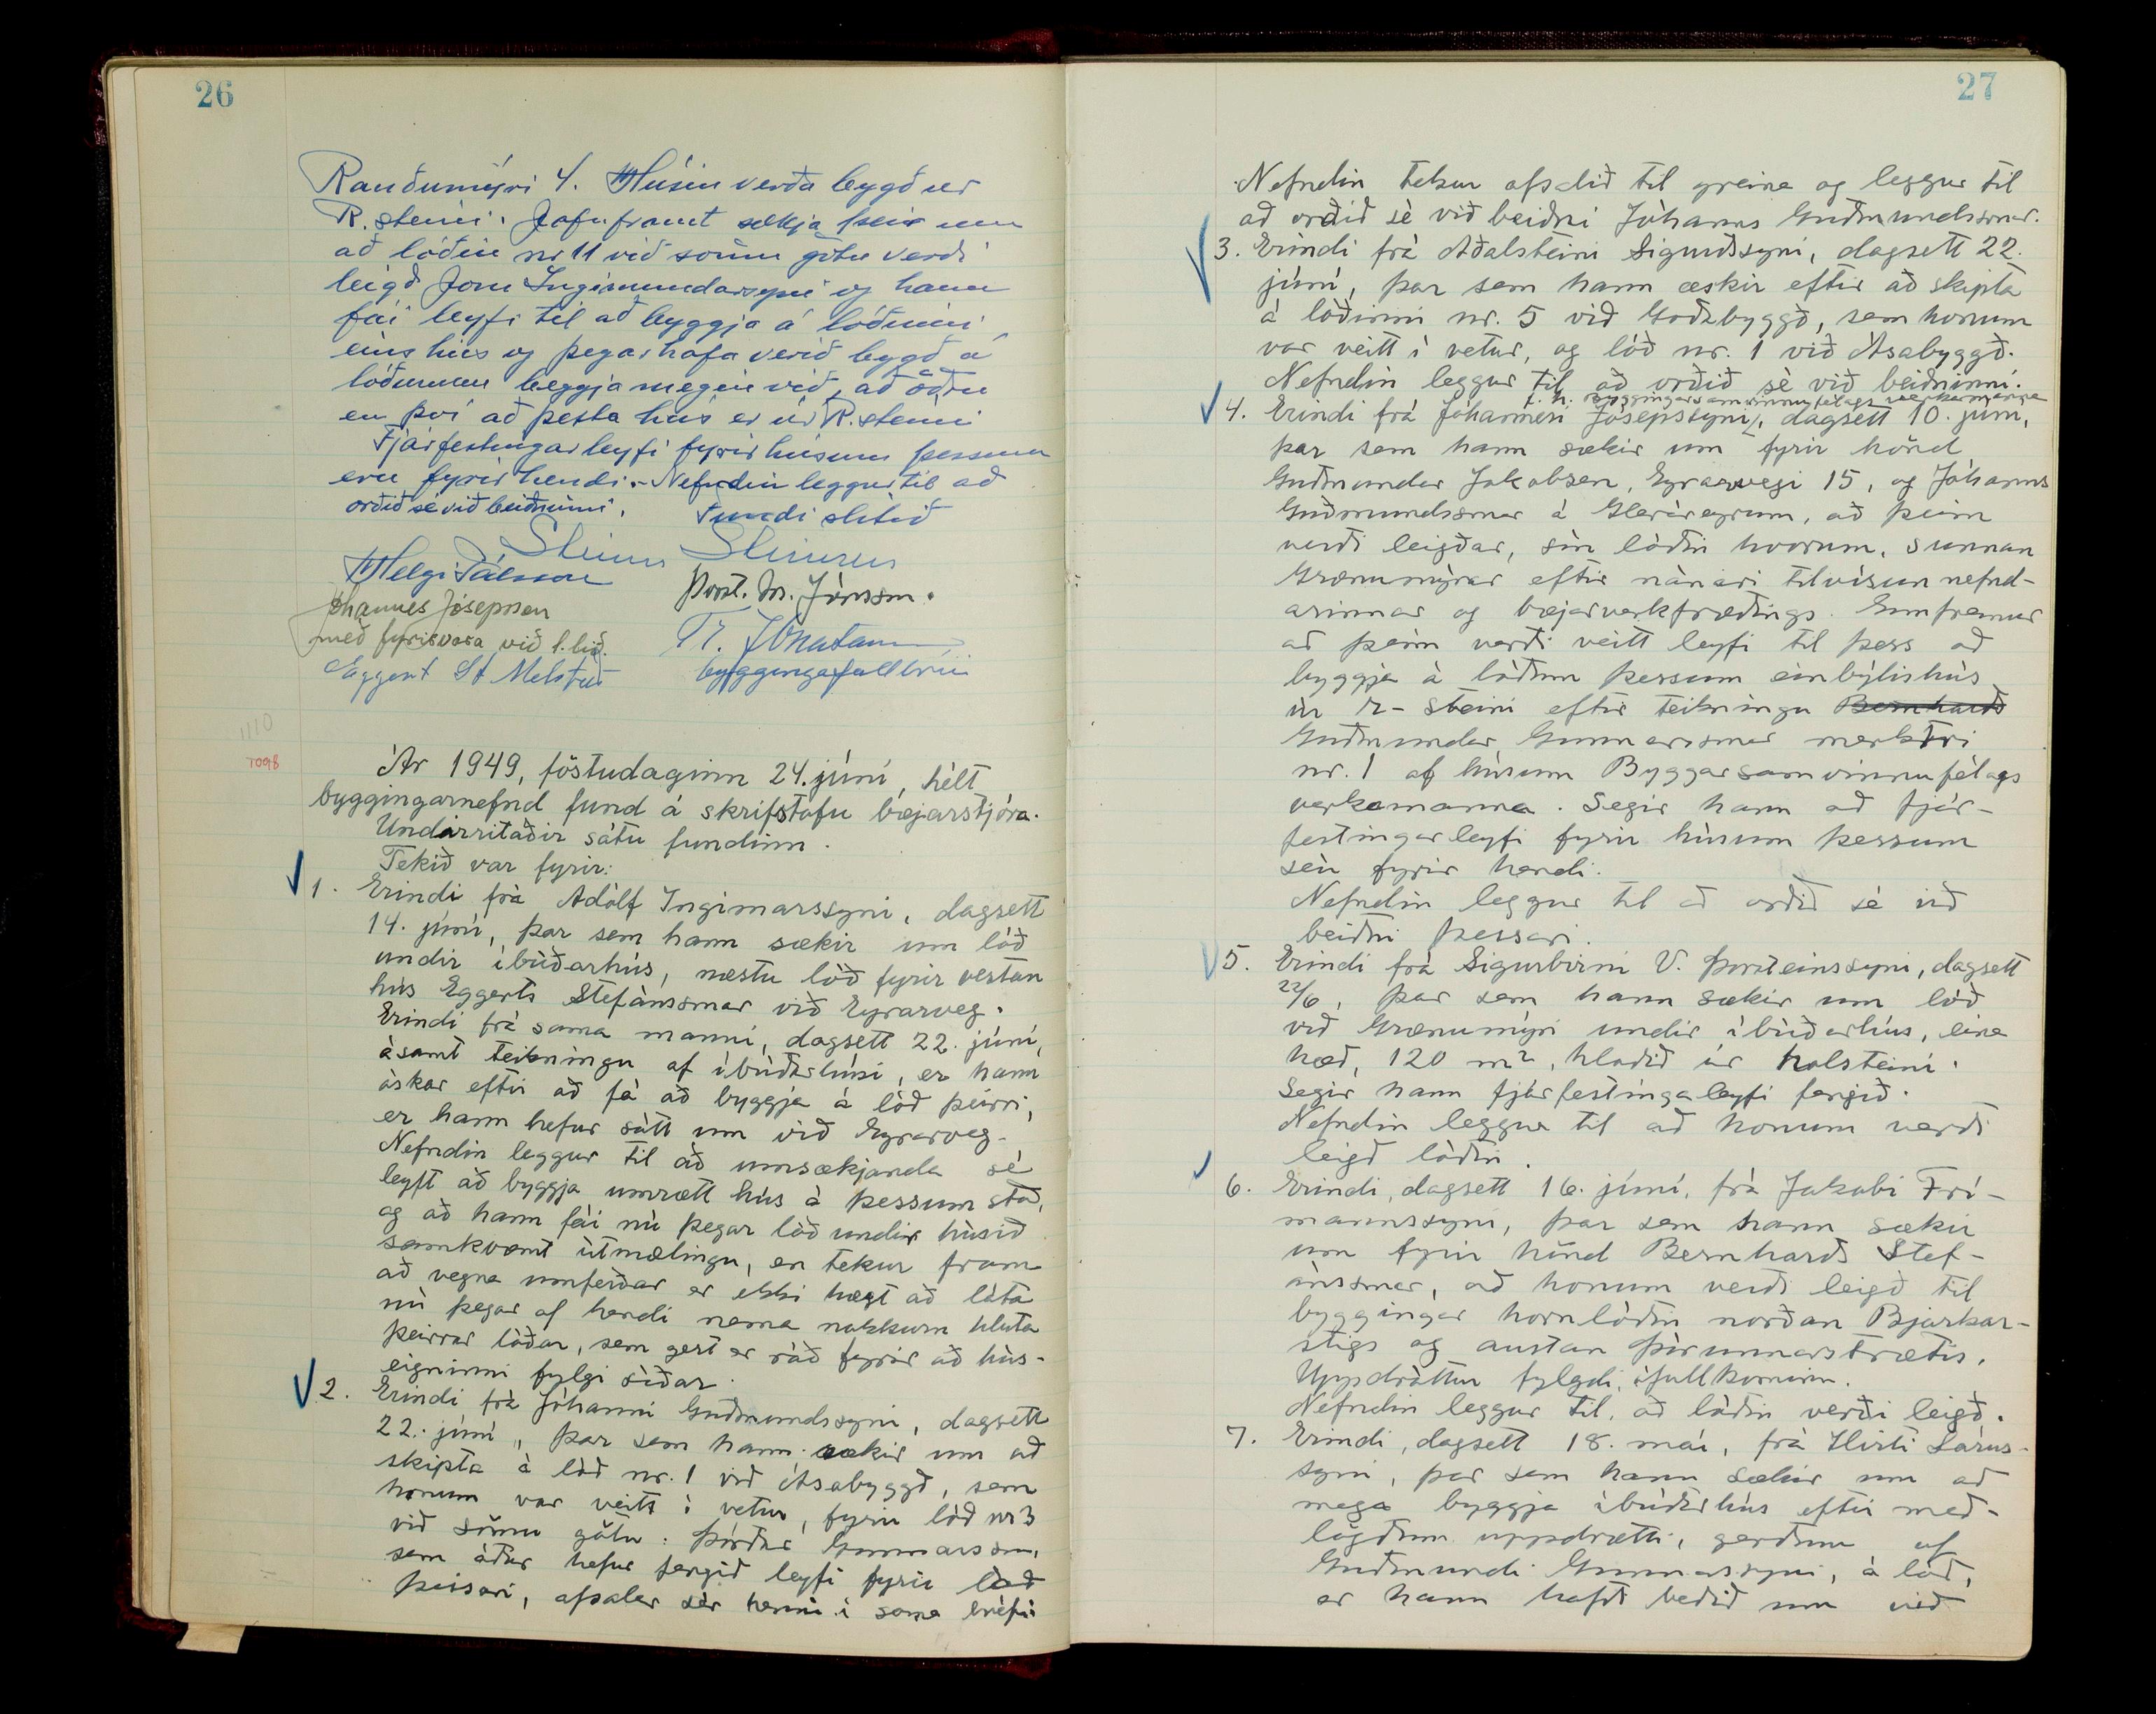 26
Rauðumýri 4. Húsin verða byggð úr
R.steini. Jafnframt sækja þeir um
að lóðin nr 11 við sömu götu verði
leigð Jóni Ingimundarsyni og hann
fái leyfi til að byggja á lóðinni
eins hús og þegar hafa verið byggð á
lóðunum beggja megin við, að öðru
en því að þetta hús er úr R.steini
Fjárfestingarleyfi fyrir húsum þessum
eru fyrir hendi. - Nefndin leggur til að
orðið sé við beiðninni. Fundi slitið
Steinn Steinsen
Helgi Pálsson
Þorst. M. Jónsson.
Jóhannes Jósepsson
með fyrirvara við 1. lið.
Tr. Jónatansson
Eggert St Melstað byggingafulltrúi
1110
1098
Ár 1949, föstudaginn 24. júní, hélt
byggingarnefnd fund á skrifstofu bæjarstjóra.
Undirritaðir sátu fundinn.
Tekið var fyrir:
1. Erindi frá Adólf Ingimarssyni, dagsett
14. júní, þar sem hann sækir um lóð
undir íbúðarhús, næstu lóð fyrir vestan
hús Eggerts Stefánssonar við Eyrarveg.
Erindi frá sama manni, dagsett 22. júní,
ásamt teikningu af íbúðarhúsi, er hann
óskar eftir að fá að byggja á lóð þeirri,
er hann hefur sótt um við Eyrarveg.
Nefndin leggur til að umsækjanda sé
leyft að byggja umrætt hús á þessum stað,
og að hann fái nú þegar lóð undir húsið
samkvæmt útmælingu, en tekur fram
að vegna umferðar er ekki hægt að láta
nú þegar af hendi nema nokkurn hluta
þeirrar lóðar, sem gert er ráð fyrir að hús-
eigninni fylgi síðar.
2. Erindi frá Jóhanni Guðmundssyni, dagsett
22. júní, þar sem hann sækir um að
skipta á lóð nr. 1 við Ásabyggð, sem
honum var veitt í vetur, fyrir lóð nr 3
við sömu götu. Þórður Gunnarsson,
sem áður hefur fengið leyfi fyrir lóð
þeirri, afsalar sér henni í sama bréfi
27
Nefndin tekur afsalið til greina og leggur til
að orðið sé við beiðni Jóhanns Guðmundssonar.
3. Erindi frá Aðalsteini Sigurðssyni, dagsett 22.
júní, þar sem hann æskir eftir að skipta
á lóðinni nr. 5 við Goðabyggð, sem honum
var veitt í vetur, og lóð nr. 1 við Ásabyggð.
Nefndin leggur til að orðið sé við beiðninni.
f. h. Byggingarsamvinnufélags verkamanna
4. Erindi frá Jóhannesi Jósepssyni, dagsett 10. júní,
þar sem hann sækir um fyrir hönd
Guðmundar Jakobsen, Eyrarvegi 15, og Jóhanns
Guðmundssonar á Gleráreyrum, að þeim
verði leigðar, sín lóðin hvorum, sunnan
Grænumýrar eftir nánari tilvísun nefnd-
arinnar og bæjarverkfræðings. Ennfremur
að þeim verði veitt leyfi til þess að
byggja á lóðum þessum einbýlishús
úr r-steini eftir teikningu Bernharðs
Guðmundar Gunnarssonar merktri
nr. 1 af húsum Byggarsamvinnufélags
verkamanna. Segir hann að fjár-
festingarleyfi fyrir húsum þessum
séu fyrir hendi.
Nefndin leggur til að orðið sé við
beiðni þessari.
5. Erindi frá Sigurbirni V. Þorsteinssyni, dagsett
22/6, þar sem hann sækir um lóð
við Grænumýri undir íbúðarhús, eina
hæð, 120 m², hlaðið úr holsteini.
Segir hann fjárfestingaleyfi fengið.
Nefndin leggur til að honum verði
leigð lóðin.
6. Erindi, dagsett 16. júní, frá Jakobi Frí-
mannssyni, þar sem hann sækir
um fyrir hönd Bernharðs Stef-
ánssonar, að honum verði leigð til
byggingar hornlóðin norðan Bjarkar-
stígs og austan Þórunnarstrætis.
Uppdráttur fylgdi, ófullkominn.
Nefndin leggur til, að lóðin verði leigð.
7. Erindi, dagsett 18. maí, frá Hirti Lárus-
syni, þar sem hann sækir um að
mega byggja íbúðarhús eftir með-
lögðum uppdrætti, gerðum af
Guðmundi Gunnarssyni, á lóð,
er hann hafði beðið um við